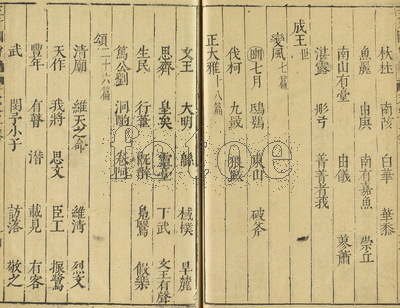 杕杜 南陔 白華 華黍
魚麗 由庚 南有嘉魚 崇丘
南山有臺 由儀 蓼蕭
湛露 彤弓 菁菁者莪
成王世
變風七篇
豳七月 鴟鴞 東山 破斧
伐柯 九罭 狼跋
正大雅十八篇
文王 大明 緜 棫樸 旱麓
思齊 皇矣 靈臺 下武 文王有聲
生民 行葦 既醉 鳧鷖 假樂
篤公劉 泂酌 卷阿
頌二十六篇
清廟 維天之命 維清 烈文
天作 我將 思文 臣工 振鷺
豐年 有瞽 潛 載見 有客
武 閔予小子 訪落 敬之